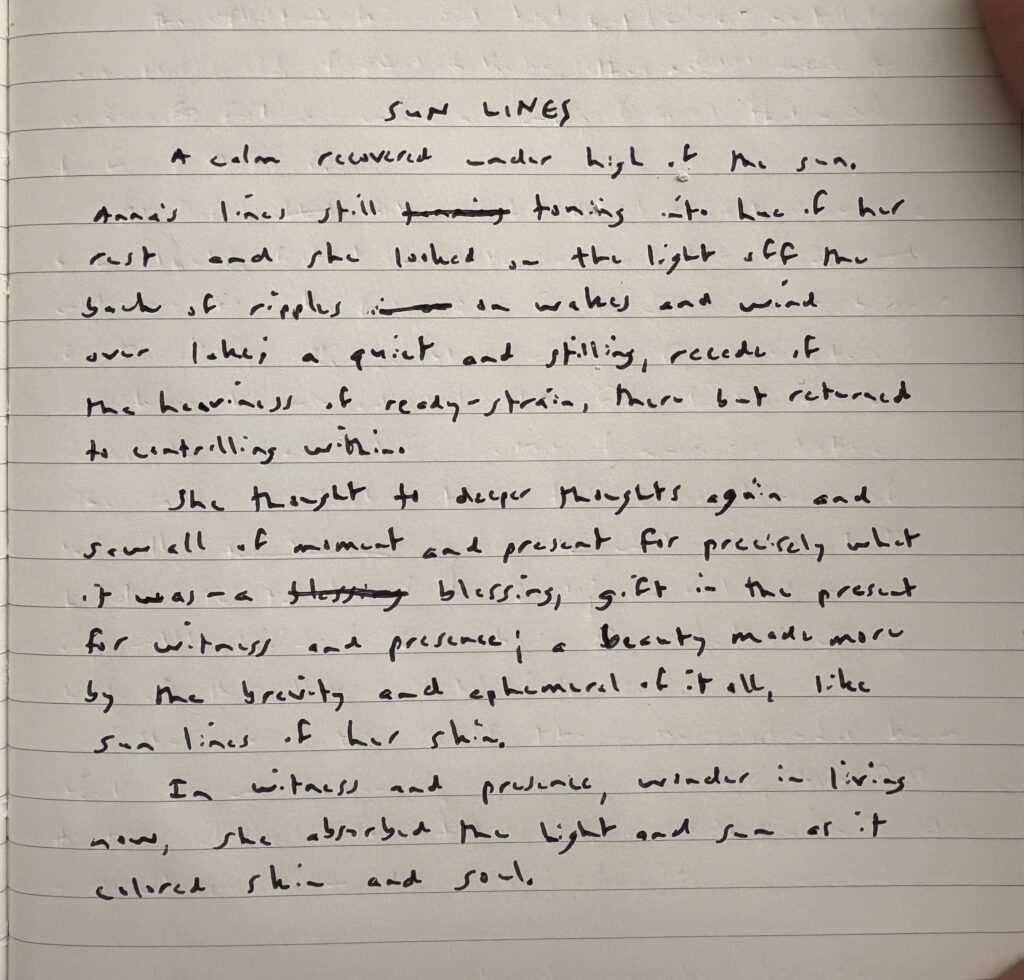 SUN LINES
A calm recovered under high of the sun.
Anna's lines still toning into hue of her
rest and she looked on the light off the
back of ripples on wakes and wind
over lake; a quiet and stilling, recede of
the heaviness of ready-strain, there but returned
to controlling within.
She thought to deeper thoughts again and
saw all of moment and present for precisely what
it was - a blessing blessing, gift in the present
for witness and presence; a beauty made more
by the brevity and ephemeral of it all, like
sun lines of her skin.
In witness and presence, wonder in living
now, she absorbed the light and sun as it
colored skin and soul.